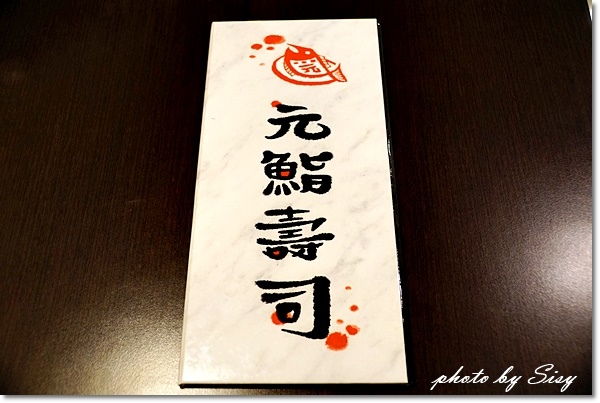 元鮨壽司
photo by Sisy